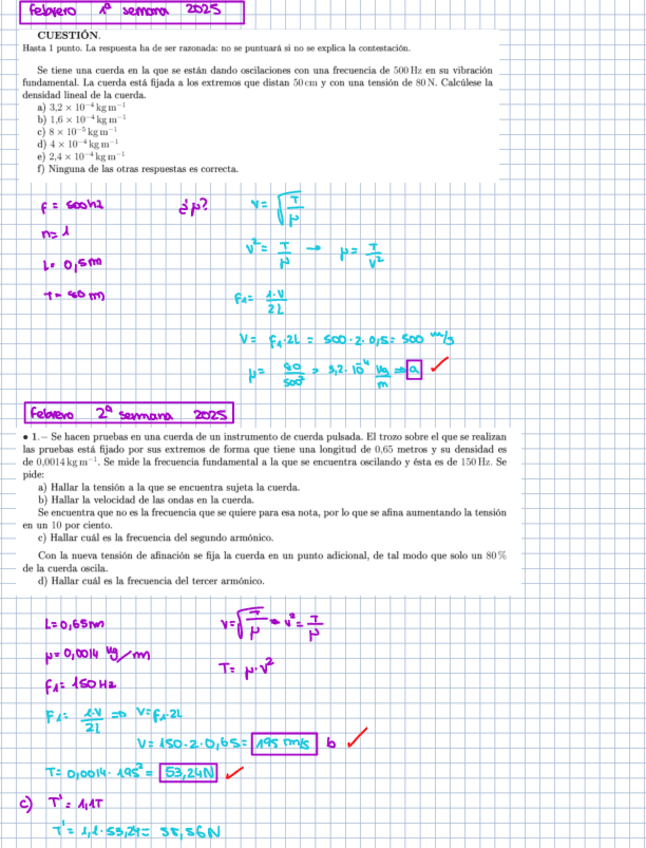 febrero 1ª semana 2025
CUESTIÓN.
Hasta 1 punto. La respuesta ha de ser razonada: no se puntuará si no se explica la contestación.
Se tiene una cuerda en la que se están dando oscilaciones con una frecuencia de 500 Hz en su vibración
fundamental. La cuerda está fijada a los extremos que distan 50 cm y con una tensión de 80 N. Calcúlese la
densidad lineal de la cuerda.
a) 3,2 × 10⁻⁴ kg m⁻¹
b) 1,6 × 10⁻⁴ kg m⁻¹
c) 8 × 10⁻⁵ kg m⁻¹
d) 4 × 10⁻⁴ kg m⁻¹
e) 2,4 × 10⁻⁴ kg m⁻¹
f) Ninguna de las otras respuestas es correcta.
f = 500hz ¿μ? v = √(T/μ)
n = 1
v² = T/μ → μ = T/v²
L = 0,5m
T = 80 m
F₁ = 1·V/2L
V = F₁·2L = 500·2·0,5 = 500 m/s
μ = 80/500² = 3,2·10⁻⁴ kg/m ⇒ a ✓
febrero 2ª semana 2025
• 1.– Se hacen pruebas en una cuerda de un instrumento de cuerda pulsada. El trozo sobre el que se realizan
las pruebas está fijado por sus extremos de forma que tiene una longitud de 0,65 metros y su densidad es
de 0,0014 kg m⁻¹. Se mide la frecuencia fundamental a la que se encuentra oscilando y ésta es de 150 Hz. Se
pide:
a) Hallar la tensión a la que se encuentra sujeta la cuerda.
b) Hallar la velocidad de las ondas en la cuerda.
Se encuentra que no es la frecuencia que se quiere para esa nota, por lo que se afina aumentando la tensión
en un 10 por ciento.
c) Hallar cuál es la frecuencia del segundo armónico.
Con la nueva tensión de afinación se fija la cuerda en un punto adicional, de tal modo que solo un 80 %
de la cuerda oscila.
d) Hallar cuál es la frecuencia del tercer armónico.
L = 0,65m v = √(T/μ) → v² = T/μ
μ = 0,0014 kg/m
T = μ·v²
f₁ = 150 Hz
F₁ = 1·V/2L ⇒ V = F₁·2L
V = 150·2·0,65 = 195 m/s b ✓
T = 0,0014·195² = 53,24N ✓
c) T' = 1,1T
T' = 1,1·53,24 = 58,56 N